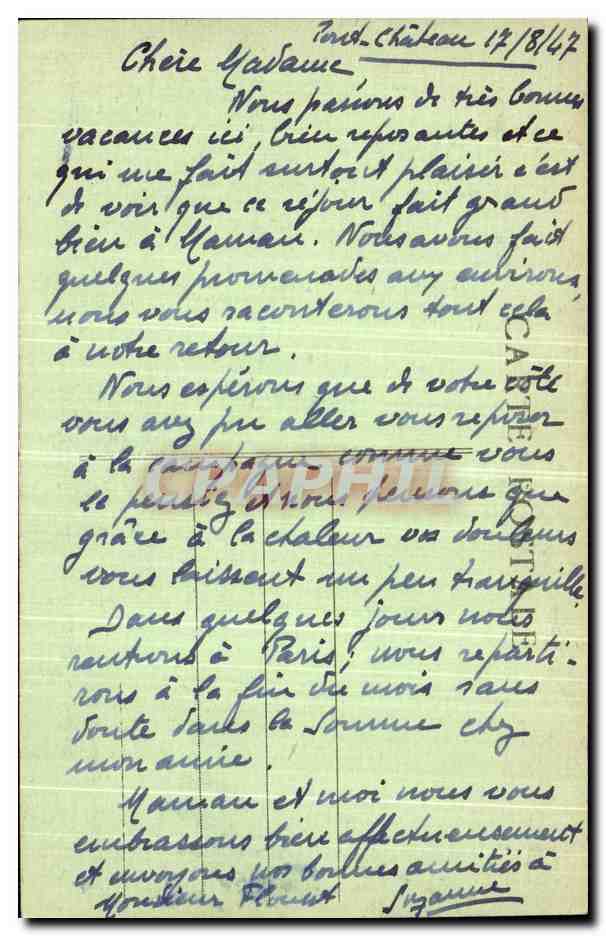 Pont-Château 17/8/47
Chère Madame,
Nous passons de très bonnes
vacances ici, bien reposantes et ce
qui me fait surtout plaisir c'est
de voir que ce séjour fait grand
bien à Maman. Nous avons fait
quelques promenades aux environs,
nous vous raconterons tout cela
à notre retour.
Nous espérons que de votre côté
vous avez pu aller vous reposer
à la campagne comme vous
le pensiez et nous pensons que
grâce à la chaleur vos douleurs
vous laissent un peu tranquille.
Dans quelques jours nous
rentrons à Paris ; nous reparti-
rons à la fin du mois sans
doute dans la Somme chez
mon amie.
Maman et moi nous vous
embrassons bien affectueusement
et envoyons nos bonnes amitiés à
Monsieur Suzanne
CARTE POSTALE
CPAPHIL